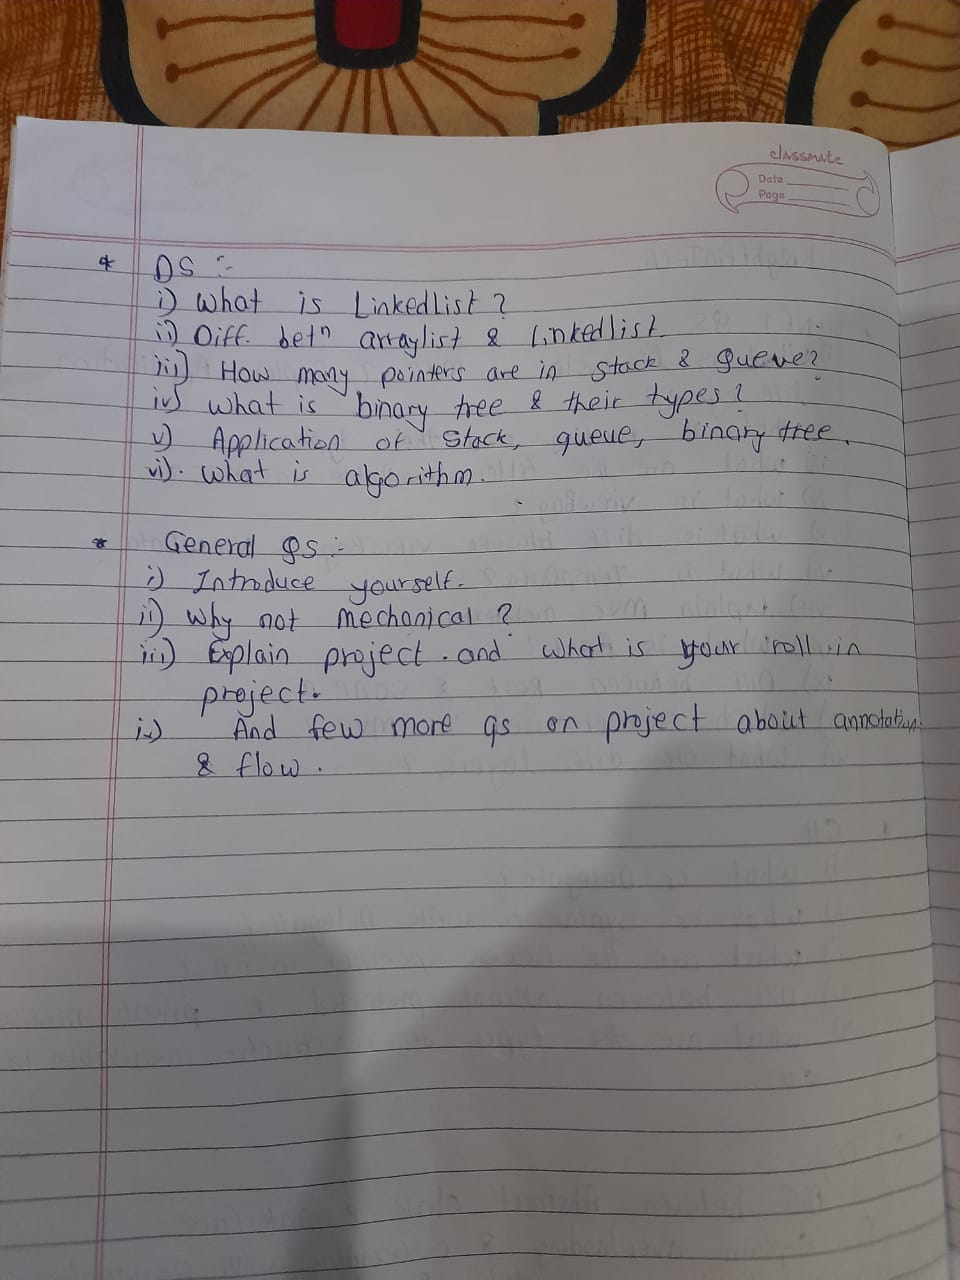 classmate
Date
Page
* DS :-
i) What is Linkedlist ?
ii) Diff. betn arraylist & Linkedlist
iii) How many pointers are in stack & queue?
iv) what is binary tree & their types ?
v) Application of stack, queue, binary tree.
vi). what is algorithm.
* General qs :-
i) Introduce yourself.
ii) Why not mechanical ?
iii) Explain project . and what is your roll in
project.
iv) And few more qs on project about annotation
& flow .